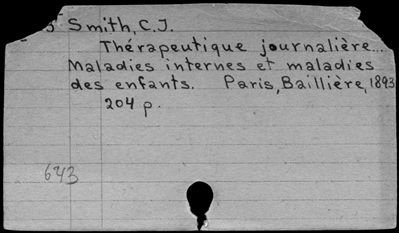 Smith, C.J.
Thérapeutique journalière...
Maladies internes et maladies
des enfants. Paris, Baillière, 1893
204 p.
643